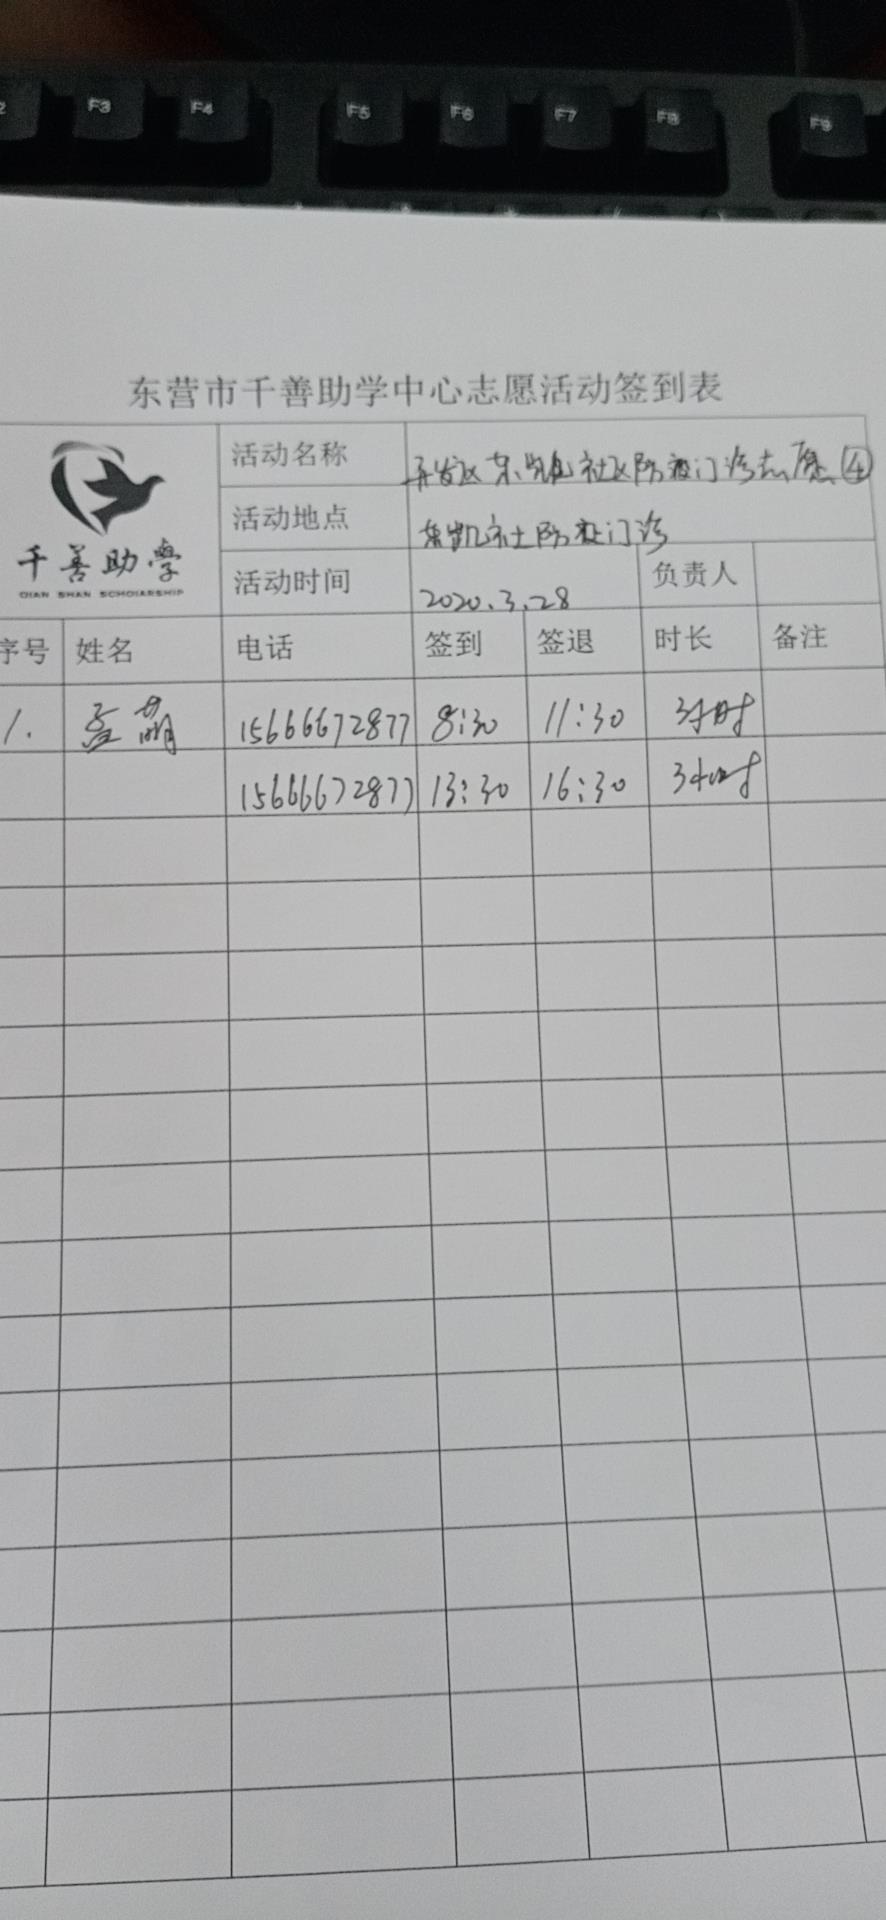 F3 F4 F5 F6 F7 F8 F9
东营市千善助学中心志愿活动签到表
千善助學
QIAN SHAN SCHOLARSHIP
活动名称 开发区东凯社区防疫门诊志愿④
活动地点 东凯社防疫门诊
活动时间 2020.3.28 负责人
序号 姓名 电话 签到 签退 时长 备注
1. 孟萌 15666672877 8:30 11:30 3小时
15666672877 13:30 16:30 3小时